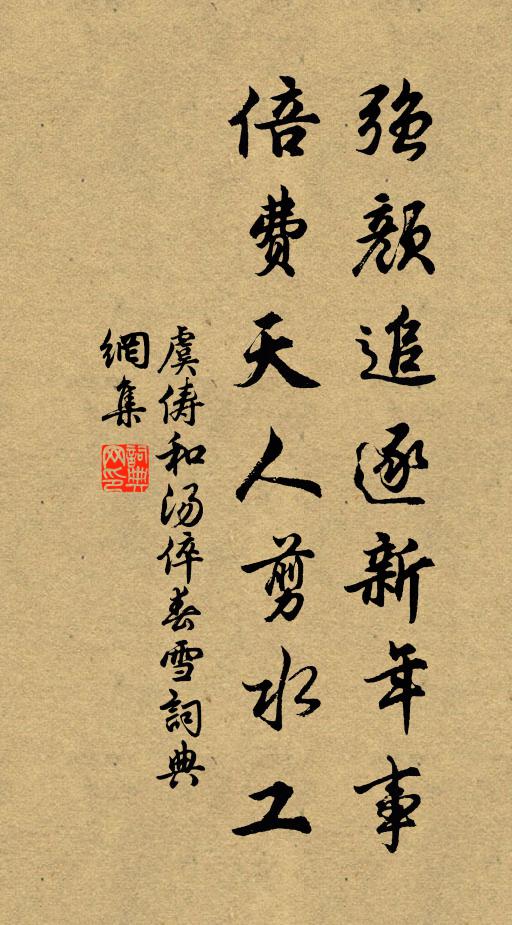 强颜追逐新年事
倍費天人剪水工
虞俦和汤倅春雪詞典
網集
詞典网印